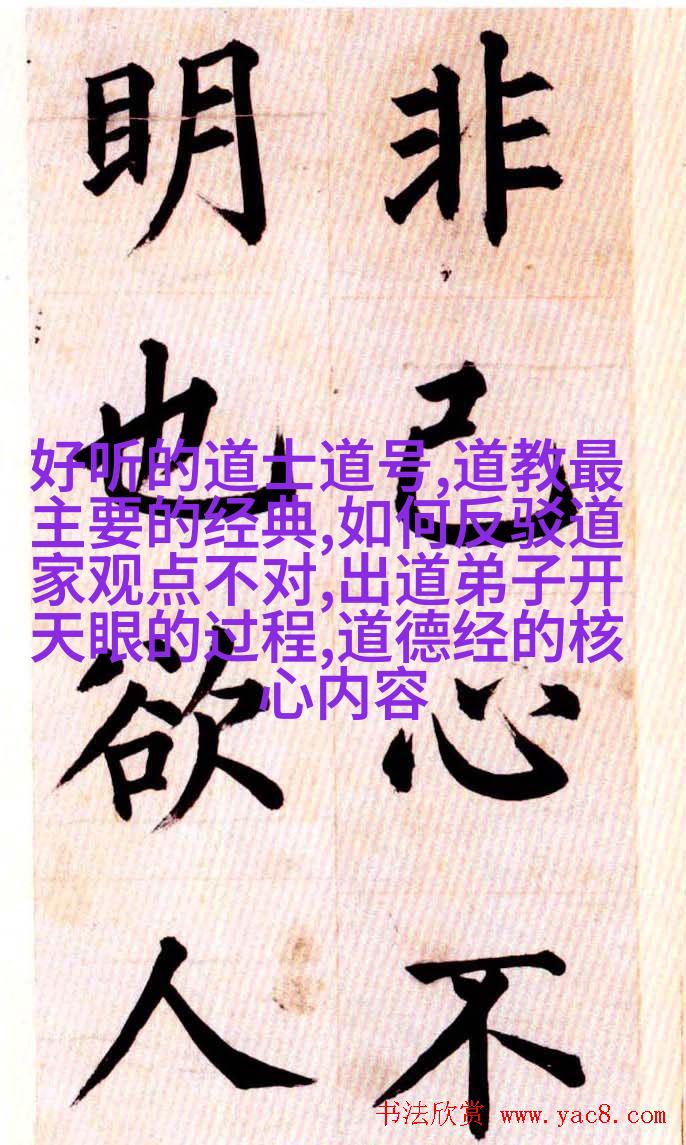 非己心不
明也欲人
好听的道士道号,道教最
主要的经典,如何反驳道
家观点不对,出道弟子开
天眼的过程,道德经的核
心内容
书法欣赏 www.yac8.com